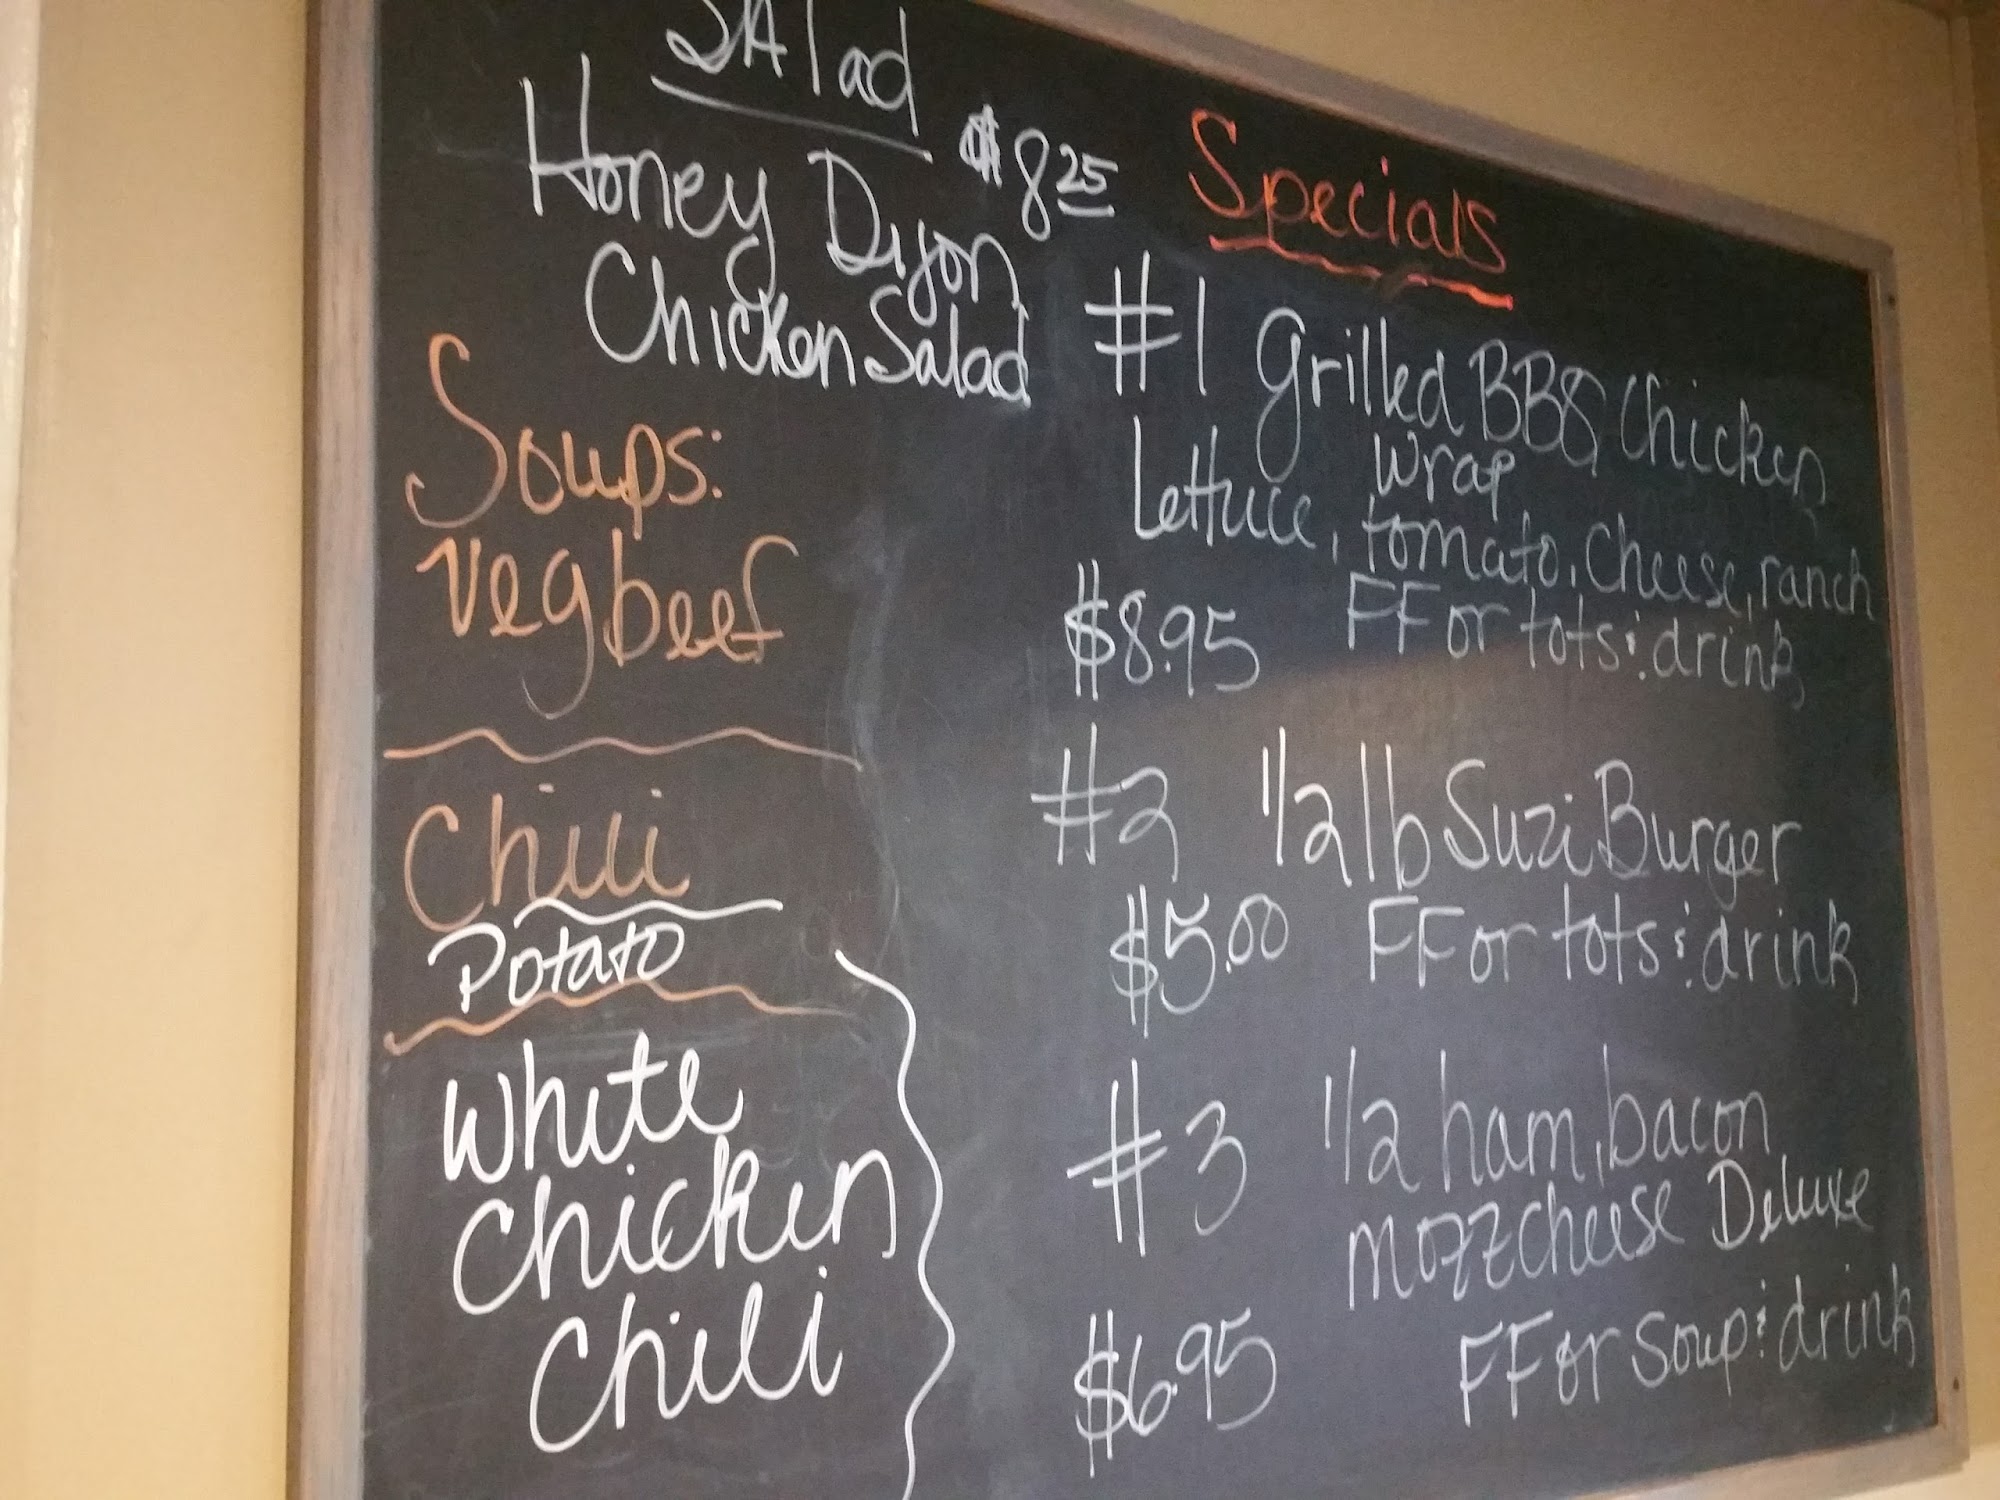 Salad
Honey Dijon $8.25
Chicken Salad
Soups:
Veg beef
Chili
Potato
White
Chicken
Chili
Specials
#1 Grilled BBQ Chicken
Wrap
Lettuce, tomato, cheese, ranch
$8.95 FF or tots & drink
#2 1/2 lb Suzi Burger
$5.00 FF or tots & drink
#3 1/2 ham, bacon
mozz cheese Deluxe
$6.95 FF or soup & drink